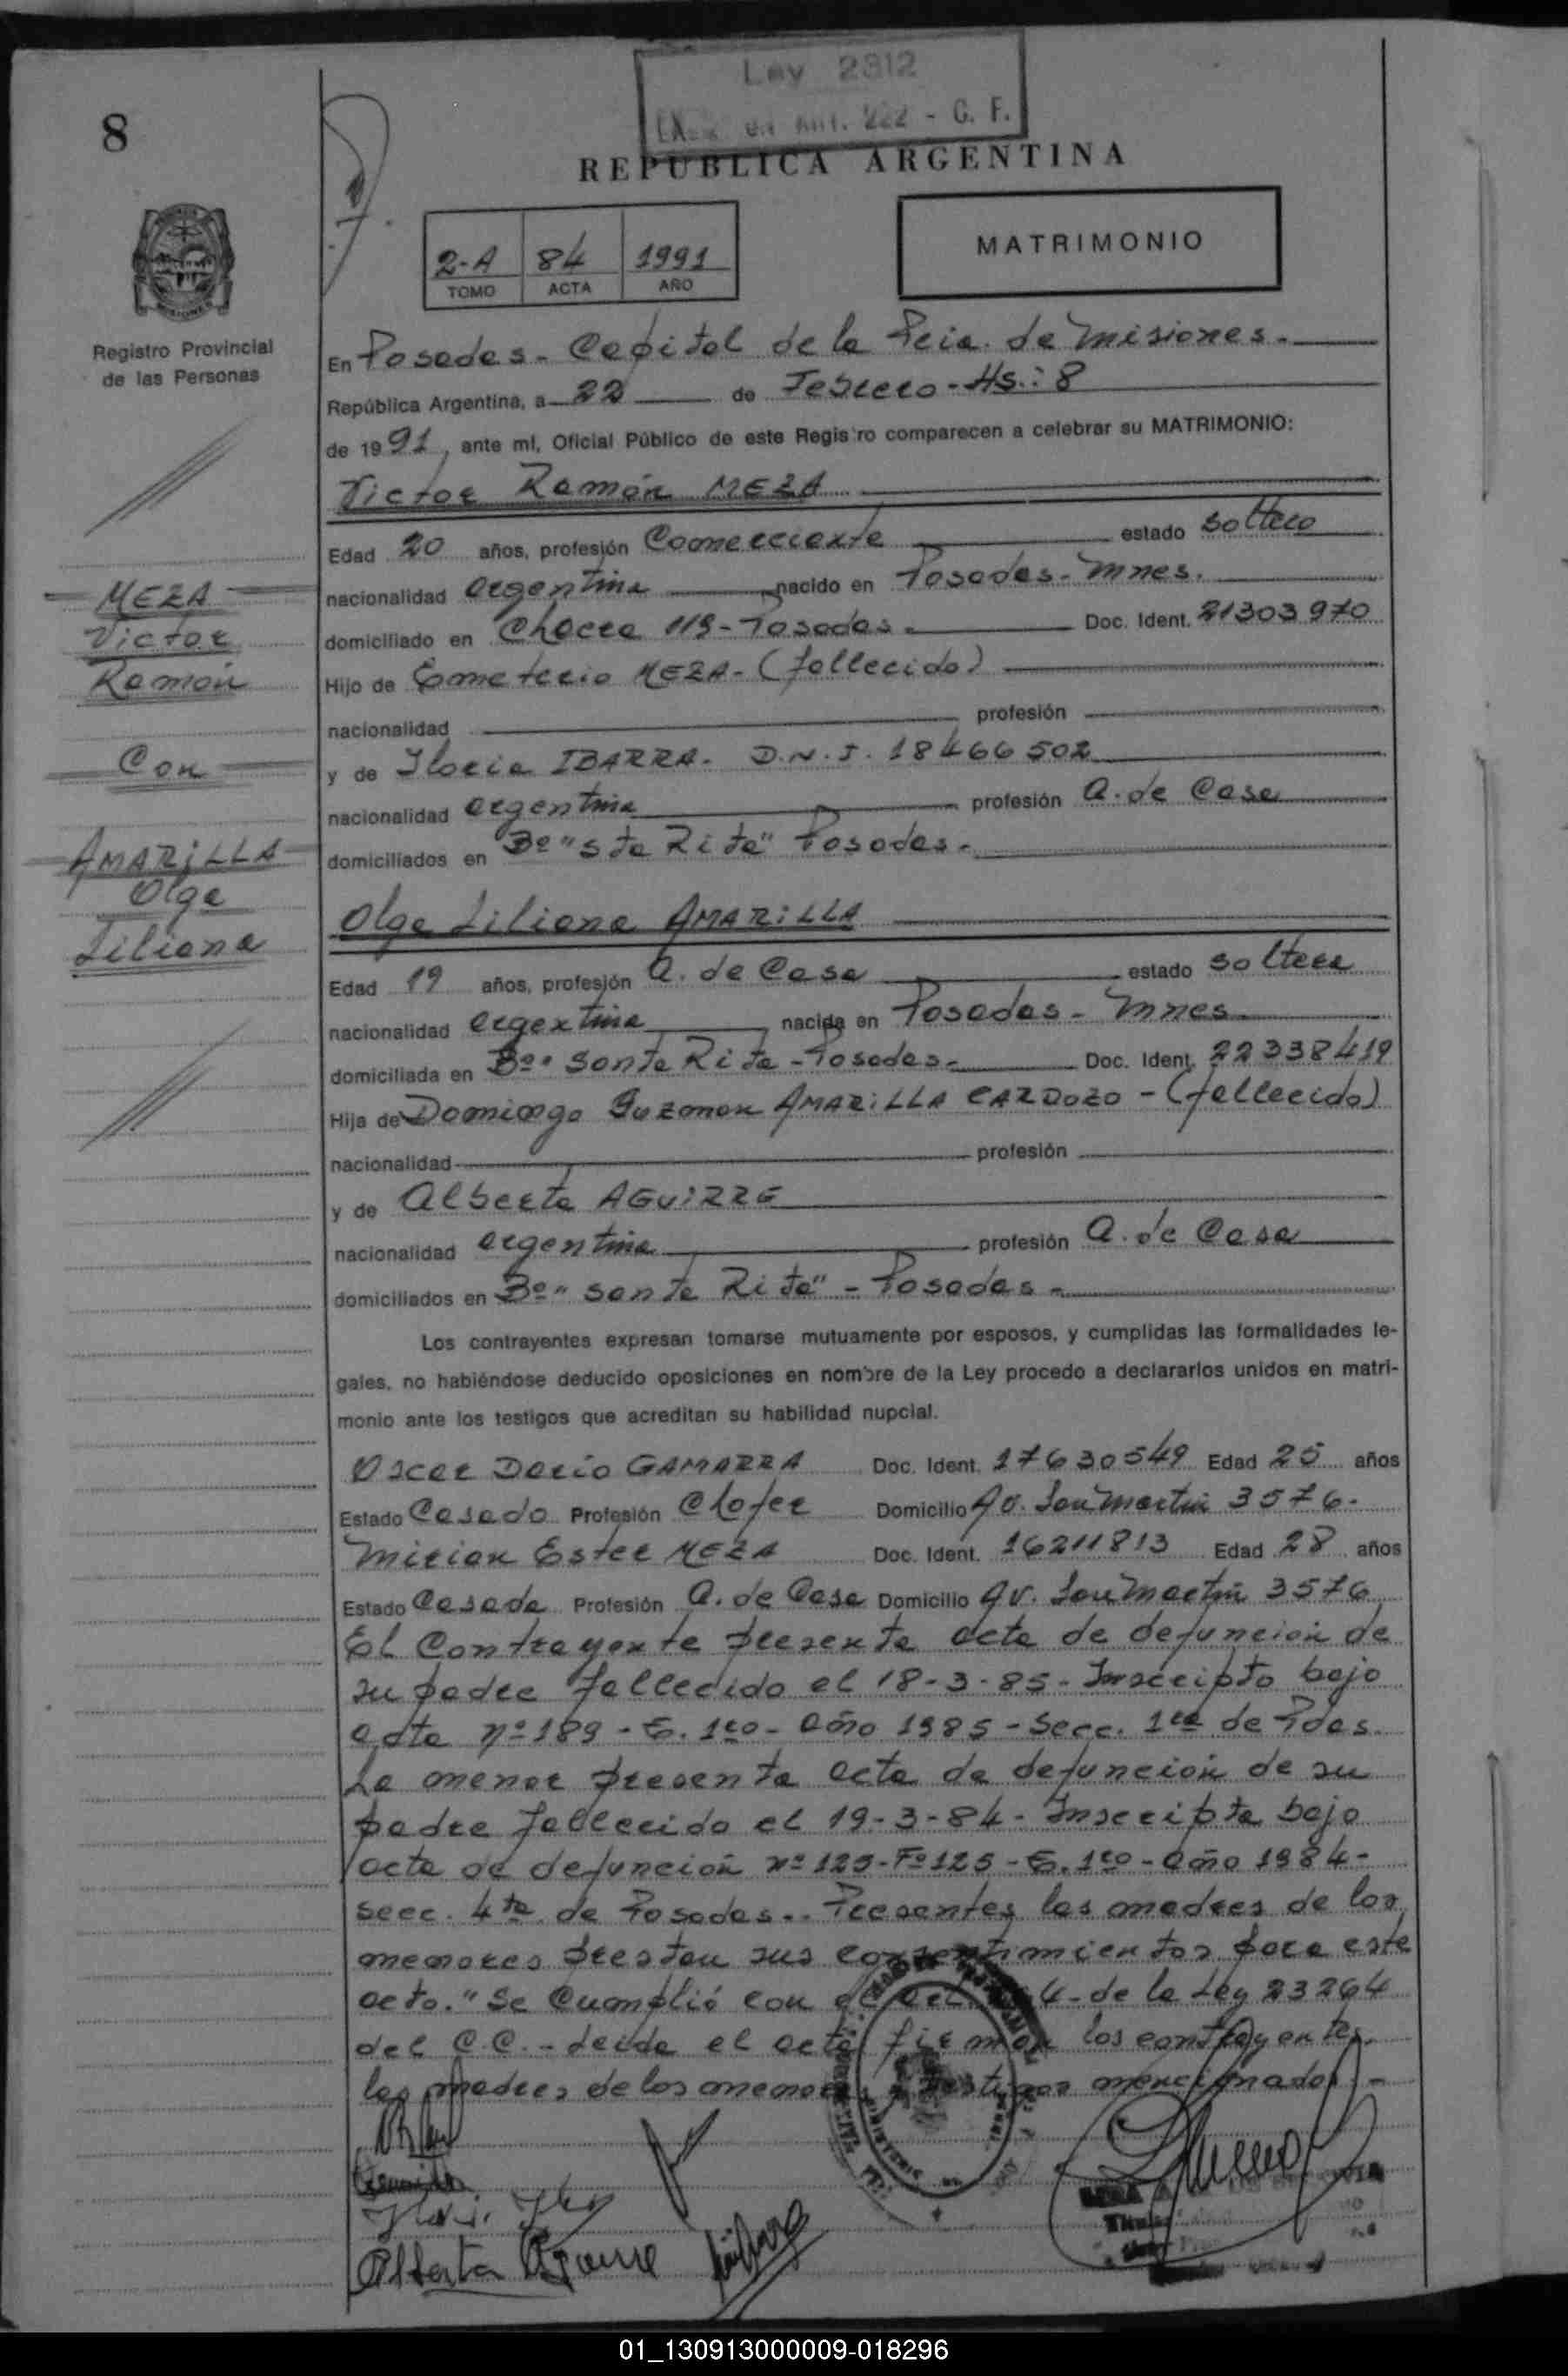 8
Ley 2812
Art. 222 - C. F.
REPUBLICA ARGENTINA
2-A 84 1991
TOMO ACTA AÑO
MATRIMONIO
Registro Provincial
de las Personas
En Posadas - Capital de la Pcia. de Misiones.
República Argentina, a 22 de Febrero - Hs.: 8
de 1991, ante mí, Oficial Público de este Registro comparecen a celebrar su MATRIMONIO:
Victor Ramón MEZA
Edad 20 años, profesión Comerciante estado soltero
nacionalidad argentina nacido en Posadas - Mnes.
domiciliado en Chacra 119 - Posadas - Doc. Ident. 21303970
Hijo de Emeterio MEZA - (fallecido)
nacionalidad profesión
y de Gloria IBARRA - D.N.I. 18466502
nacionalidad argentina profesión A. de Casa
domiciliados en Bº "Sta Rita" Posadas -
Olga Liliana AMARILLA
Edad 19 años, profesión A. de Casa estado soltera
nacionalidad argentina nacida en Posadas - Mnes.
domiciliada en Bº Santa Rita - Posadas - Doc. Ident. 22338419
Hija de Domingo Guzman AMARILLA CARDOZO - (fallecido)
nacionalidad profesión
y de Alberta AGUIRRE
nacionalidad argentina profesión A. de Casa
domiciliados en Bº "Santa Rita" - Posadas -
MEZA
Victor
Ramón
Con
AMARILLA
Olga
Liliana
Los contrayentes expresan tomarse mutuamente por esposos, y cumplidas las formalidades le-
gales, no habiéndose deducido oposiciones en nombre de la Ley procedo a declararlos unidos en matri-
monio ante los testigos que acreditan su habilidad nupcial.
Oscar Dario GAMARRA Doc. Ident. 17630549 Edad 25 años
Estado Casado Profesión Chofer Domicilio Av. San Martin 3576.
Mirian Ester MEZA Doc. Ident. 16211813 Edad 28 años
Estado Casada Profesión A. de Casa Domicilio Av. San Martin 3576
El Contrayente presenta acta de defunción de
su padre fallecido el 18-3-85 - Inscripto bajo
acta nº 189 - T. 1ro - Año 1985 - Secc. 1ra de Pdas.
La menor presenta acta de defunción de su
padre fallecido el 19-3-84 - Inscripta bajo
acta de defunción nº 125 - Fº 125 - T. 1ro - Año 1984 -
secc. 4ta de Posadas.. Presentes las madres de los
menores prestan sus consentimientos para este
acto." Se Cumplió con el art. 4 - de la Ley 23264
del C.C. - Leida el acta firman los contrayentes,
las madres de los menores y testigos mencionados. -
Alberta Aguirre
01_130913000009-018296